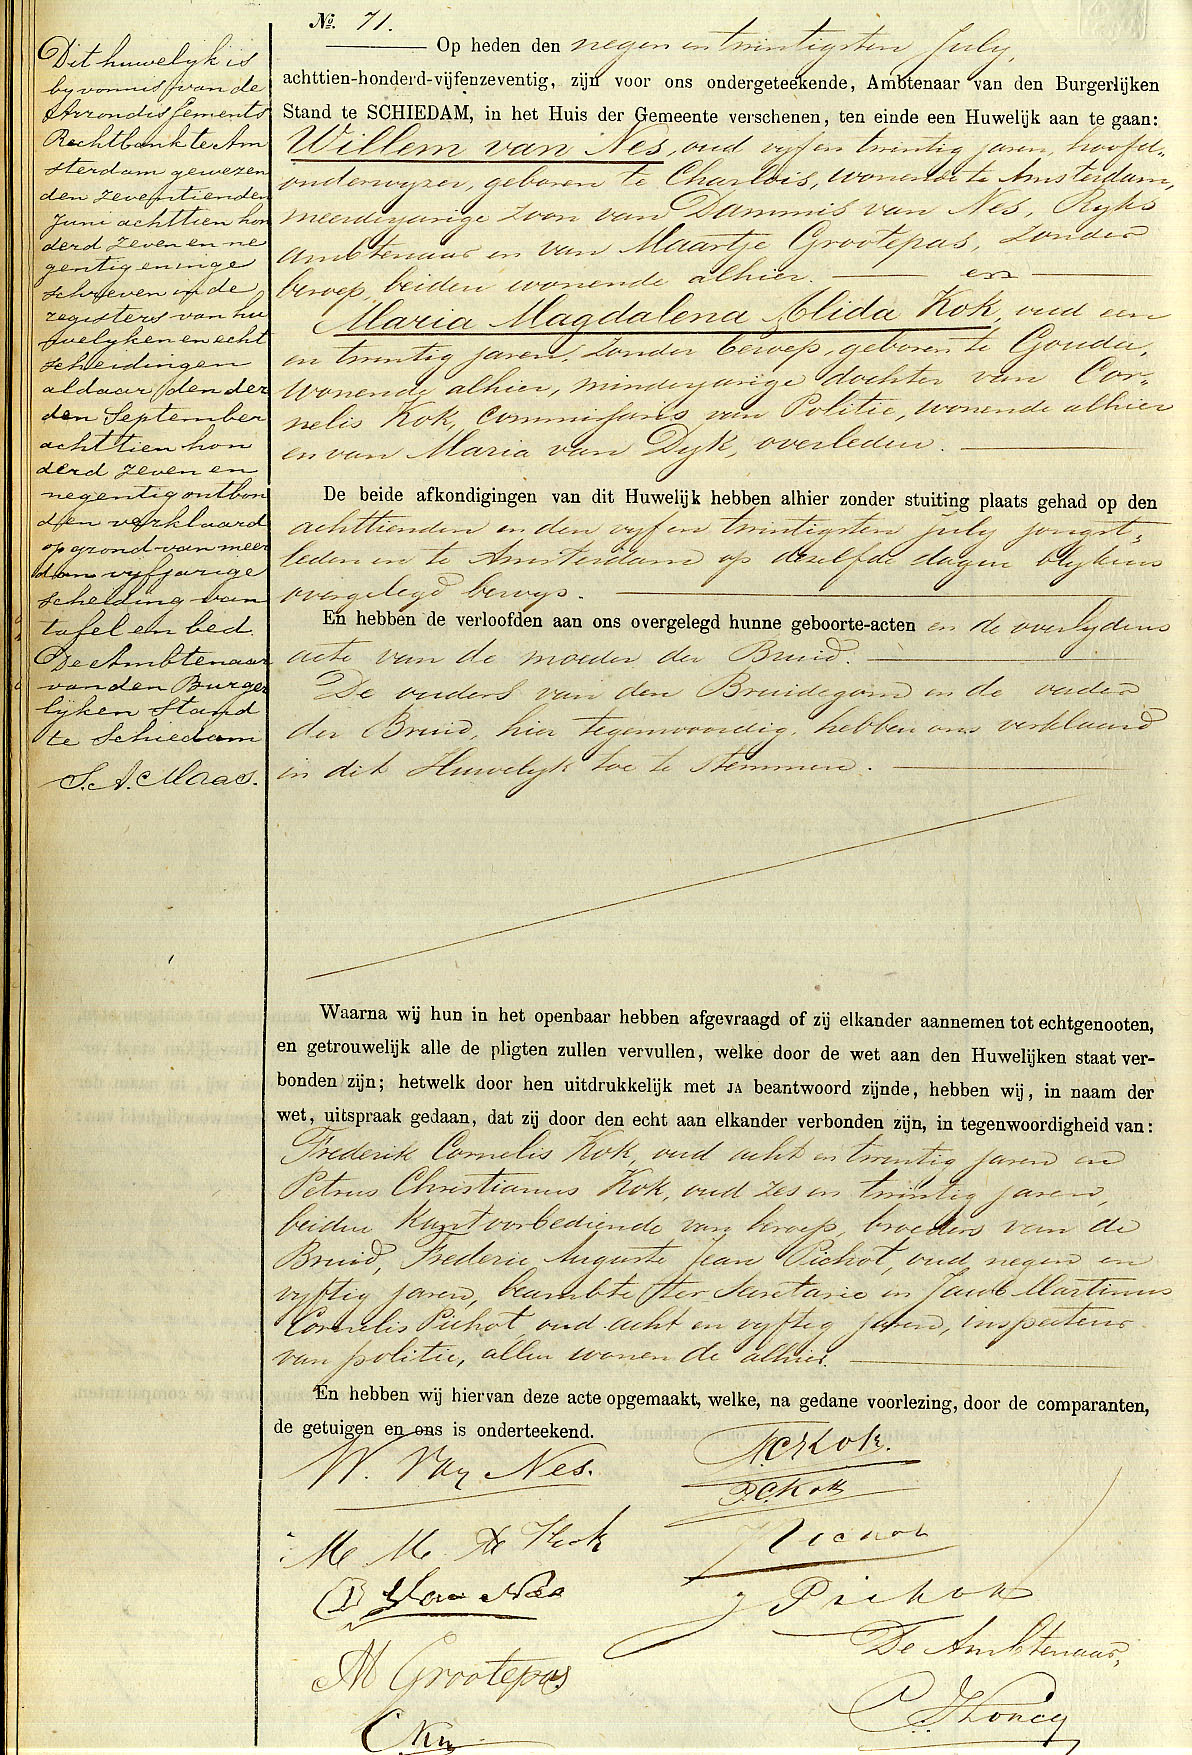 Nº. 71.
Op heden den negen en twintigsten July,
achttien-honderd-vijfenzeventig, zijn voor ons ondergeteekende, Ambtenaar van den Burgerlijken
Stand te SCHIEDAM, in het Huis der Gemeente verschenen, ten einde een Huwelijk aan te gaan:
Willem van Nes, oud vyf en twintig jaren, hoofd-
onderwyzer, geboren te Charlois, wonende te Amsterdam,
meerderjarige zoon van Dammis van Nes, Ryks
ambtenaar en van Maartje Grootepas, zonder
beroep, beiden wonende alhier. en
Maria Magdalena Alida Kok, oud een
en twintig jaren, zonder beroep, geboren te Gouda,
wonende alhier, minderjarige dochter van Cor-
nelis Kok, Commissaris van Politie, wonende alhier
en van Maria van Dyk, overleden.
De beide afkondigingen van dit Huwelijk hebben alhier zonder stuiting plaats gehad op den
achttienden en den vyf en twintigsten July jongst-
leden en te Amsterdam op dezelfde dagen blykens
overgelegd bewys.
En hebben de verloofden aan ons overgelegd hunne geboorte-acten en de overlydens
acte van de moeder der Bruid.
De ouders van den Bruidegom en de vader
der Bruid, hier tegenwoordig, hebben ons verklaard
in dit Huwelyk toe te stemmen.
Waarna wij hun in het openbaar hebben afgevraagd of zij elkander aannemen tot echtgenooten,
en getrouwelijk alle de pligten zullen vervullen, welke door de wet aan den Huwelijken staat ver-
bonden zijn; hetwelk door hen uitdrukkelijk met JA beantwoord zijnde, hebben wij, in naam der
wet, uitspraak gedaan, dat zij door den echt aan elkander verbonden zijn, in tegenwoordigheid van:
Frederik Cornelis Kok, oud acht en twintig jaren en
Petrus Christianus Kok, oud zes en twintig jaren,
beiden kantoorbediende van beroep, broeders van de
Bruid, Frederic Auguste Jean Pichot, oud negen en
vyftig jaren, beambte ter Secretarie en Jacob Martinus
Cornelis Pichot, oud acht en vyftig jaren, inspecteur
van politie, allen wonende alhier.
En hebben wij hiervan deze acte opgemaakt, welke, na gedane voorlezing, door de comparanten,
de getuigen en ons is onderteekend.
W. Van Nes.
F.C. Kok.
P.C. Kok
M. M. A. Kok
Pichot
D Van Nes
J Pichot
De Ambtenaar,
M Grootepas
C Kok
Dit huwelyk is
by vonnis van de
Arrondissements
Rechtbank te Am
sterdam gewezen
den zeventienden
Juni achttien hon
derd zeven en ne
gentig en inge
schreven in de
registers van hu
welyken en echt
scheidingen
aldaar den der
den September
achttien hon
derd zeven en
negentig ontbon
den verklaard
op grond van meer
dan vyfjarige
scheiding van
tafel en bed.
De Ambtenaar
van den Burger
lyken Stand
te Schiedam
S. A. Maas.